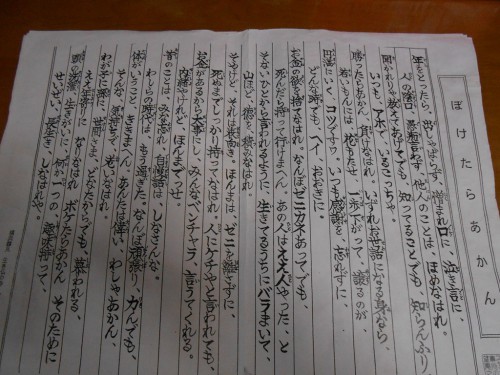 ぼけたらあかん
年をとったら、出しゃばらず、憎まれ口に、泣き言に、
人の陰口、愚痴言わず、他人のことは、ほめなはれ。
聞かれりゃ教えてあげても、知ってることでも、知らんふり、
いつも、アホで、いるこっちゃ。
勝ったらあかん、負けなはれ。いずれお世話になる身なら、
若いもんには、花もたせ、一歩下がって、譲るのが、
円満にいく、コツですわ。いつも感謝を、忘れずに、
どんな時でも、ヘイ、おおきに。
お金の欲を、捨てなはれ。なんぼゼニカネあっても、
死んだら持って行けまへん。あの人はええ人やった、と
そないひとから、言われるように、生きてるうちにバラまいて、
山ほど、徳を、積みなはれ。
そやけど、それは表向き、ほんまは、ゼニを、離さずに、
死ぬまでしっかり、持ってなはれ。人にケチやと言われても、
お金があるから大事にし、みんなベンチャラ、言うてくれる。
内緒やけれど、ほんまでっせ。
昔のことは、みな忘れ、自慢話は、しなさんな。
わしらの時代は、もう過ぎた。なんぼ頑張り、力んでも、
体がいうこと、ききまへん。あんたは偉い、わしゃあかん、
そんな気持ちで、老いなはれ。
わが子に孫に、世間さま、どなたからでも、慕われる、
ええ年寄りに、なりなはれ。ボケたらあかん、そのために
頭の洗濯、生きがいに、何か一つの、趣味持って、
せいぜい、長生き、しなはれや。